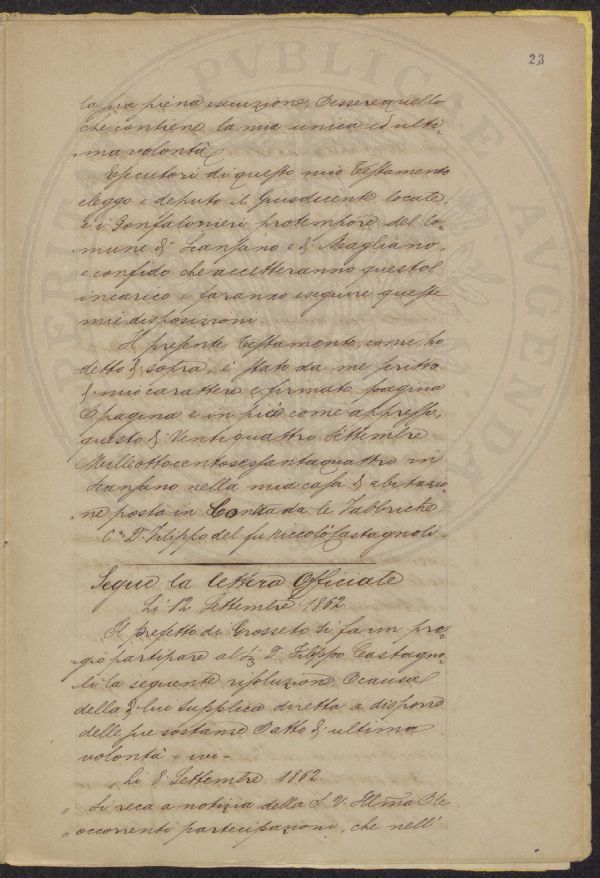 23
la sua piena esecuzione, Essere quello
che contiene la mia unica ed ulti-
-ma volontà
Esecutori di questo mio Testamento
eleggo e deputo il Giusdicente locale,
e i Gonfalonieri protempore del Co-
mune di Scansano e di Magliano,
e confido che accetteranno questo
incarico e faranno eseguire queste
mie disposizioni
Il presente Testamento, come ho
detto di sopra, è stato da me scritto
di mio carattere e firmato pagina
pagina e in piè come appresso,
questo dì Ventiquattro Settembre
Milleottocentosessantaquattro in
Scansano nella mia casa di abitazio-
ne posta in Contrada le Fabbriche
D. Filippo del fu Niccolò Castagnoli -
Segue la lettera Officiale
Li 12 Settembre 1862
Il prefetto di Grosseto si fa un pre-
-gio partipare al D. Filippo Castagno-
-li la seguente risoluzione
della di lui supplica diretta a disporre
delle sue sostanze atto di ultima
volontà = ivi =
Li 8 Settembre 1862
„ Si reca a notizia della S. V. Illma
„ occorrenti partecipazioni, che nell'
PERITA PVBLICAE AVGENDAE